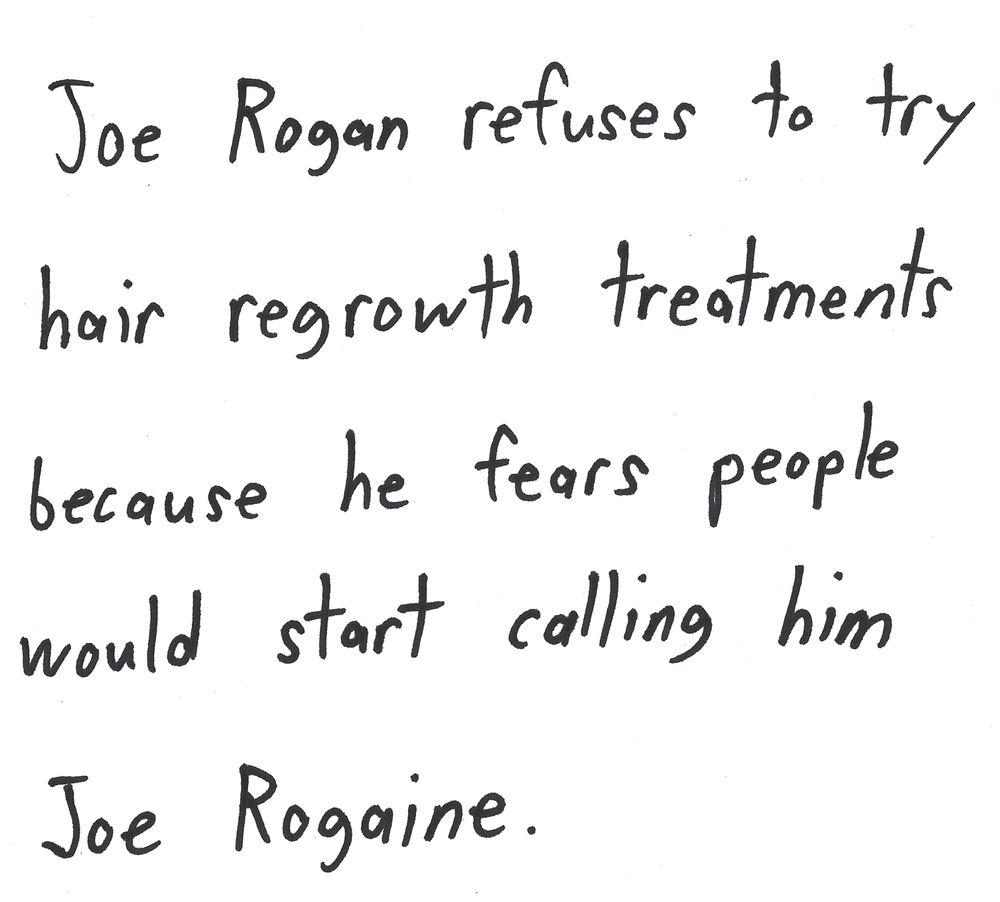 Joe Rogan refuses to try
hair regrowth treatments
because he fears people
would start calling him
Joe Rogaine.